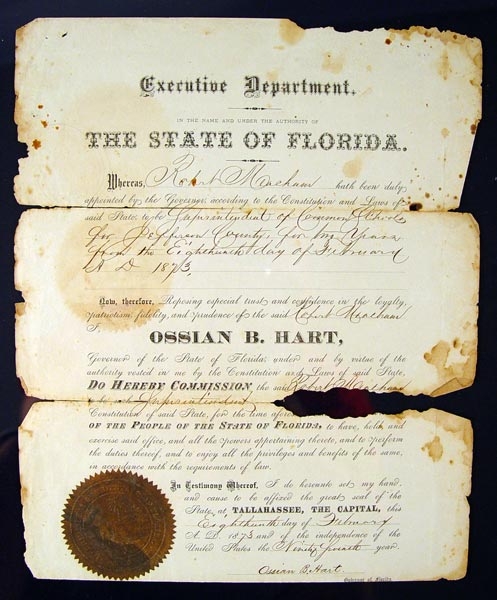 Executive Department.
IN THE NAME AND UNDER THE AUTHORITY OF
THE STATE OF FLORIDA.
Whereas, Robert Meacham hath been duly
appointed by the Governor, according to the Constitution and Laws of
said State, to be Superintendent of Common Schools
for Jefferson County, for two Years
from the Eighteenth day of February
A D 1873,
Now, therefore, Reposing especial trust and confidence in the loyalty,
patriotism, fidelity, and prudence of the said Robert Meacham
I,
OSSIAN B. HART,
Governor of the State of Florida, under and by virtue of the
authority vested in me by the Constitution and Laws of said State,
DO HEREBY COMMISSION the said Robert Meacham
to be such Superintendent
Constitution of said State, for the time afores
OF THE PEOPLE OF THE STATE OF FLORIDA, to have, hold, and
exercise said office, and all the powers appertaining thereto, and to perform
the duties thereof, and to enjoy all the privileges and benefits of the same,
in accordance with the requirements of law.
In Testimony Whereof, I do hereunto set my hand,
and cause to be affixed the great seal of the
State, at TALLAHASSEE, THE CAPITAL, this
Eighteenth day of February
A. D. 1873 and of the independence of the
United States the Ninety seventh year.
Ossian B. Hart
Governor of Florida.